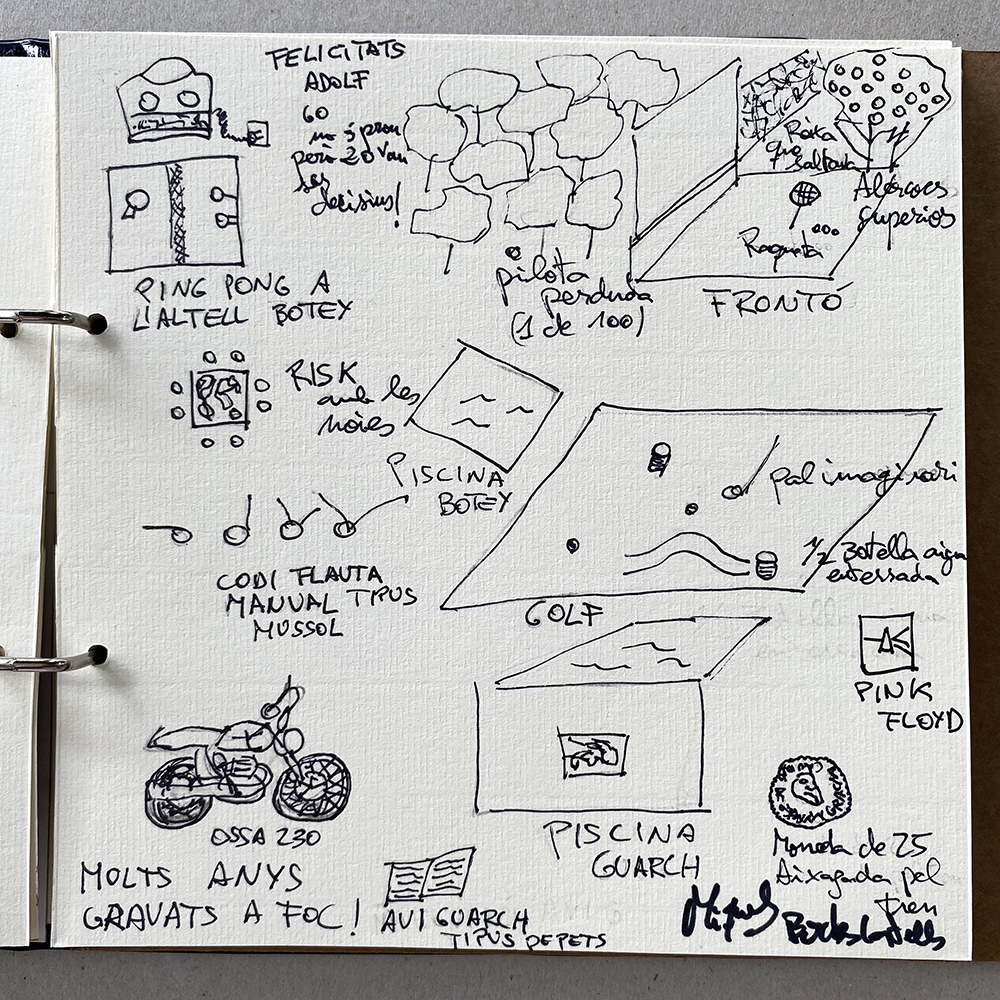 FELICITATS
ADOLF
60
no és prou
però 20 van
ser
decisius!
PING PONG A
L'ALTELL BOTEY
pilota
perduda
(1 de 100)
que saltava
Raqueta
superios
FRONTÓ
RISK
amb les
noies
PISCINA
BOTEY
pal imaginari
1/2 Botella aigua
enterrada
GOLF
CODI FLAUTA
MANUAL TIPUS
MUSSOL
PINK
FLOYD
OSSA 230
PISCINA
GUARCH
Moneda de 25
Aixafada pel
tren
MOLTS ANYS
GRAVATS A FOC!
AVI GUARCH
TIPUS DE PETS
Miquel